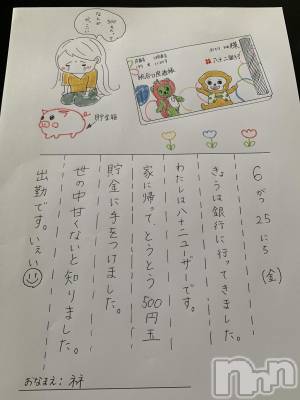 6がつ25にち(金)
きょうは銀行に行ってきました。
わたしは八十二ユーザーです。
家に帰って、とうとう500円玉
貯金に手をつけました。
世の中甘くないと知りました。
出勤です。いぇい
おなまえ:
貯金箱
八十二銀行
様
500